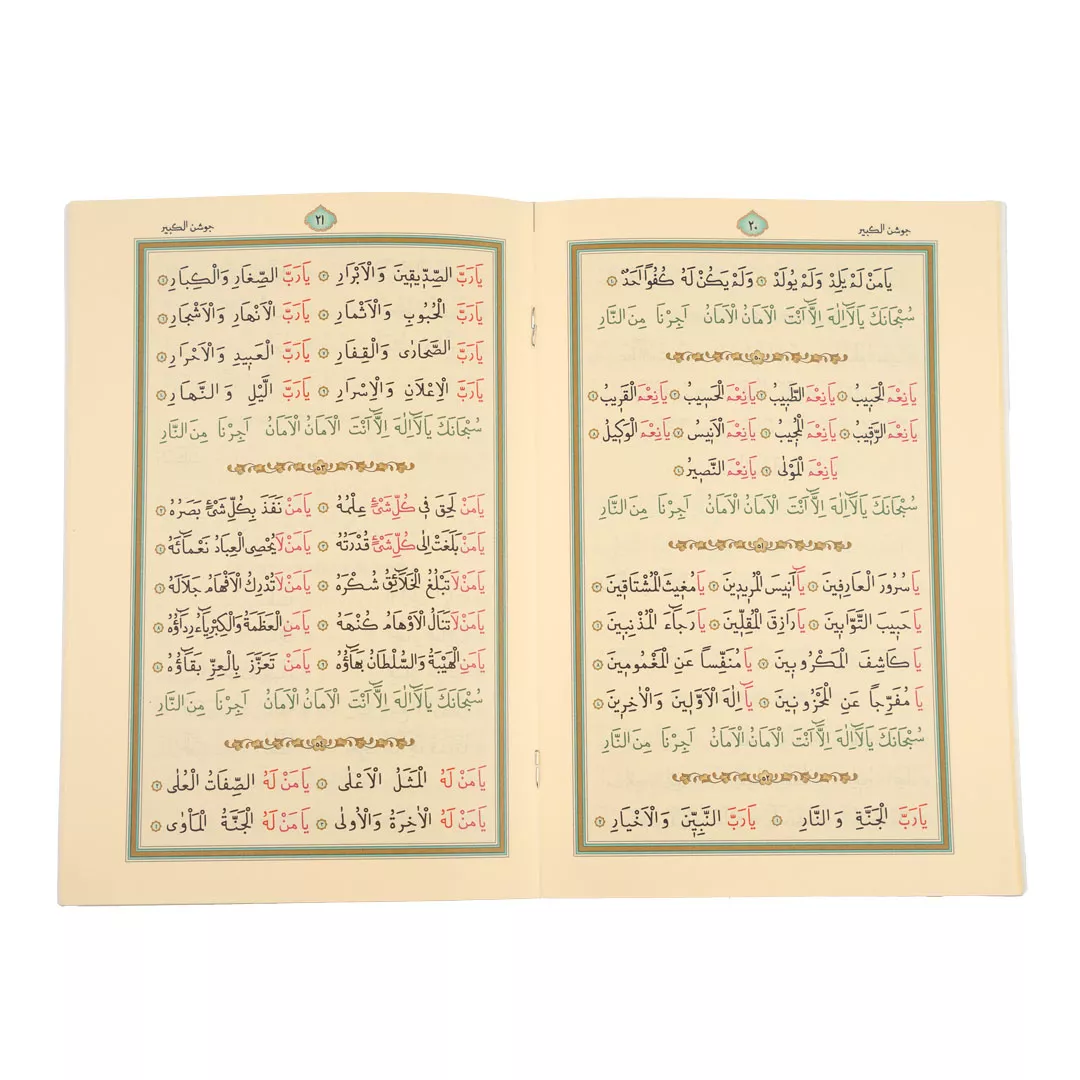 جوشن الكبير
٢٠
يَا مَنْ لَمْ يَلِدْ وَلَمْ يُولَدْ وَلَمْ يَكُنْ لَهُ كُفُوًا اَحَدٌ
سُبْحَانَكَ يَا لَٓا اِلٰهَ اِلَّٓا اَنْتَ الْاَمَانُ الْاَمَانُ اَجِرْنَا مِنَ النَّارِ
٥٠
يَا نِعْمَ الْحَبِيبُ يَا نِعْمَ الطَّبِيبُ يَا نِعْمَ الْحَسِيبُ يَا نِعْمَ الْقَرِيبُ
يَا نِعْمَ الرَّقِيبُ يَا نِعْمَ الْمُجِيبُ يَا نِعْمَ الْاَنِيسُ يَا نِعْمَ الْوَكِيلُ
يَا نِعْمَ الْمَوْلٰى يَا نِعْمَ النَّصِيرُ
سُبْحَانَكَ يَا لَٓا اِلٰهَ اِلَّٓا اَنْتَ الْاَمَانُ الْاَمَانُ اَجِرْنَا مِنَ النَّارِ
٥١
يَا سُرُورَ الْعَارِفِينَ يَٓا اَنِيسَ الْمُرِيدِينَ يَا مُغِيثَ الْمُشْتَاقِينَ
يَا حَبِيبَ التَّوَّابِينَ يَا رَازِقَ الْمُقِلِّينَ يَا رَجَٓاءَ الْمُذْنِبِينَ
يَا كَاشِفَ الْمَكْرُوبِينَ يَا مُنَفِّسًا عَنِ الْمَغْمُومِينَ
يَا مُفَرِّجًا عَنِ الْمَحْزُونِينَ يَٓا اِلٰهَ الْاَوَّلِينَ وَالْاٰخِرِينَ
سُبْحَانَكَ يَا لَٓا اِلٰهَ اِلَّٓا اَنْتَ الْاَمَانُ الْاَمَانُ اَجِرْنَا مِنَ النَّارِ
٥٢
يَا رَبَّ الْجَنَّةِ وَالنَّارِ يَا رَبَّ النَّبِيِّينَ وَالْاَخْيَارِ
جوشن الكبير
٢١
يَا رَبَّ الصِّدِّيقِينَ وَالْاَبْرَارِ يَا رَبَّ الصِّغَارِ وَالْكِبَارِ
يَا رَبَّ الْحُبُوبِ وَالْاَثْمَارِ يَا رَبَّ الْاَنْهَارِ وَالْاَشْجَارِ
يَا رَبَّ الصَّحَارٰى وَالْقِفَارِ يَا رَبَّ الْعَبِيدِ وَالْاَحْرَارِ
يَا رَبَّ الْاِعْلَانِ وَالْاِسْرَارِ يَا رَبَّ الَّيْلِ وَالنَّهَارِ
سُبْحَانَكَ يَا لَٓا اِلٰهَ اِلَّٓا اَنْتَ الْاَمَانُ الْاَمَانُ اَجِرْنَا مِنَ النَّارِ
٥٣
يَا مَنْ لَحِقَ فِي كُلِّ شَيْءٍ عِلْمُهُ يَا مَنْ نَفَذَ بِكُلِّ شَيْءٍ بَصَرُهُ
يَا مَنْ بَلَغَتْ اِلٰى كُلِّ شَيْءٍ قُدْرَتُهُ يَا مَنْ لَا يُحْصِي الْعِبَادُ نَعْمَٓائَهُ
يَا مَنْ لَا تَبْلُغُ الْخَلَٓائِقُ شُكْرَهُ يَا مَنْ لَا تُدْرِكُ الْاَفْهَامُ جَلَالَهُ
يَا مَنْ لَا تَنَالُ الْاَوْهَامُ كُنْهَهُ يَا مَنِ الْعَظَمَةُ وَالْكِبْرِيَٓاءُ رِدَٓاؤُهُ
يَا مَنِ الْهَيْبَةُ وَالسُّلْطَانُ بَهَٓاؤُهُ يَا مَنْ تَعَزَّزَ بِالْعِزِّ بَقَٓاؤُهُ
سُبْحَانَكَ يَا لَٓا اِلٰهَ اِلَّٓا اَنْتَ الْاَمَانُ الْاَمَانُ اَجِرْنَا مِنَ النَّارِ
٥٤
يَا مَنْ لَهُ الْمَثَلُ الْاَعْلٰى يَا مَنْ لَهُ الصِّفَاتُ الْعُلٰى
يَا مَنْ لَهُ الْاٰخِرَةُ وَالْاُولٰى يَا مَنْ لَهُ الْجَنَّةُ الْمَأْوٰى